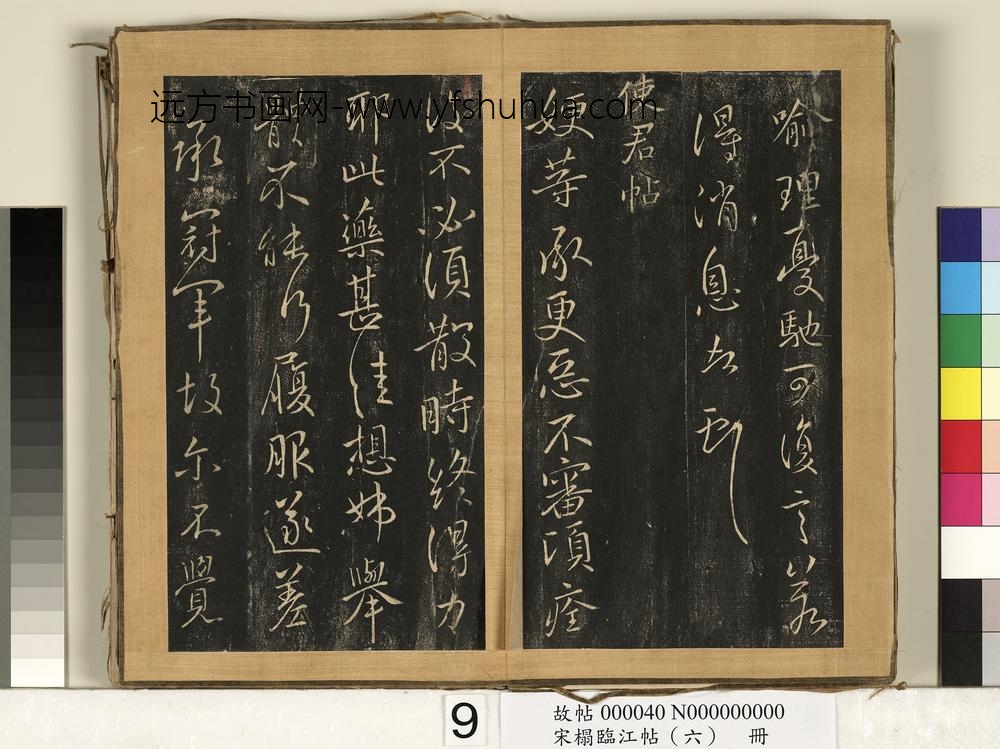 喻理憂馳可復言若
得消息告郗
使君帖
嫂等承更惡不審須痊
汝不必須散時終得力
耶此藥甚佳想姊舉
體不能行履服遂差
承冠軍故尔不覺
远方书画网-www.yfshuhua.com
9
故帖 000040 N000000000
宋榻臨江帖（六） 冊